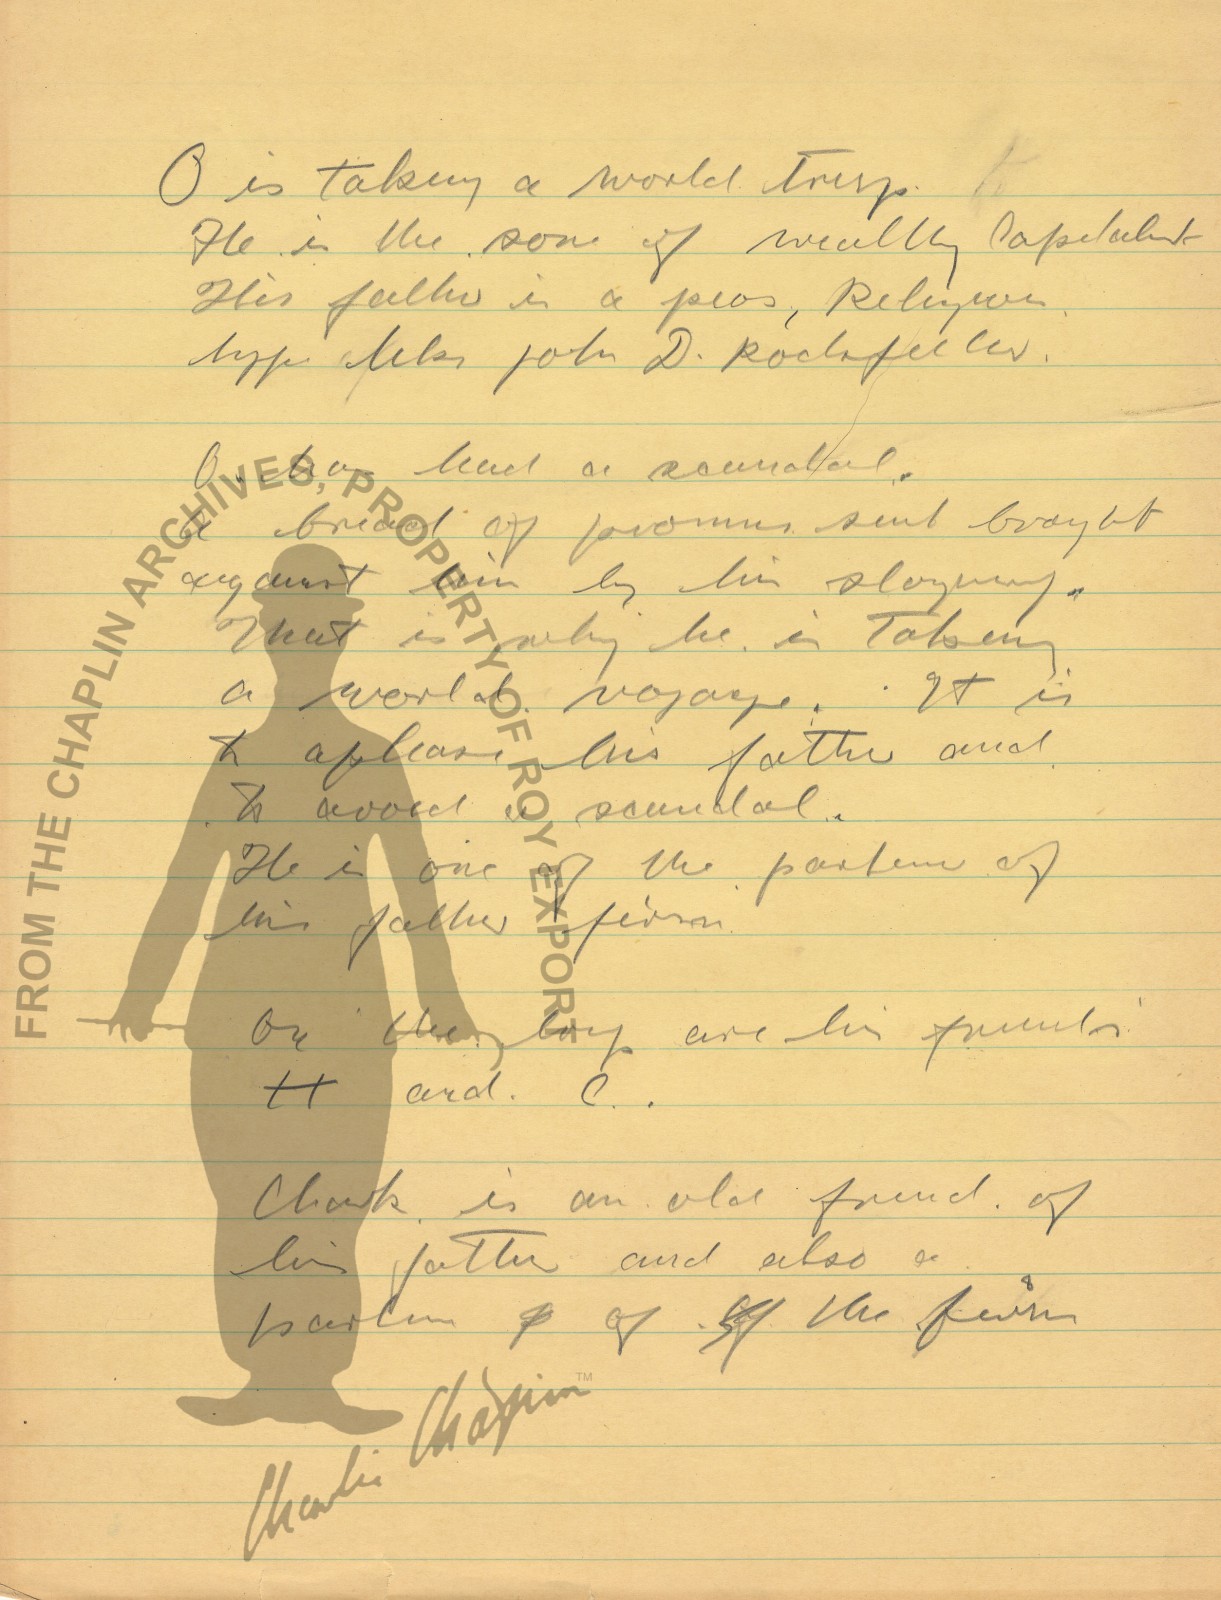 O is taking a world trip.
He is the son of wealthy Capitalist
His father is a pios, Religious
type like john D. Rockefeller.
O. has had a scandal.
a breach of promis suit brought
against him by his
That is why he is Taking
a world voyage. It is
to aplease his father and
to avoid a scandal.
He is one of the partner of
his father firm
On the boy are his friends
H and. C..
Chark is an old friend. of
his father and also a
partner of the firm
FROM THE CHAPLIN ARCHIVES, PROPERTY OF ROY EXPORT
Charlie Chaplin™